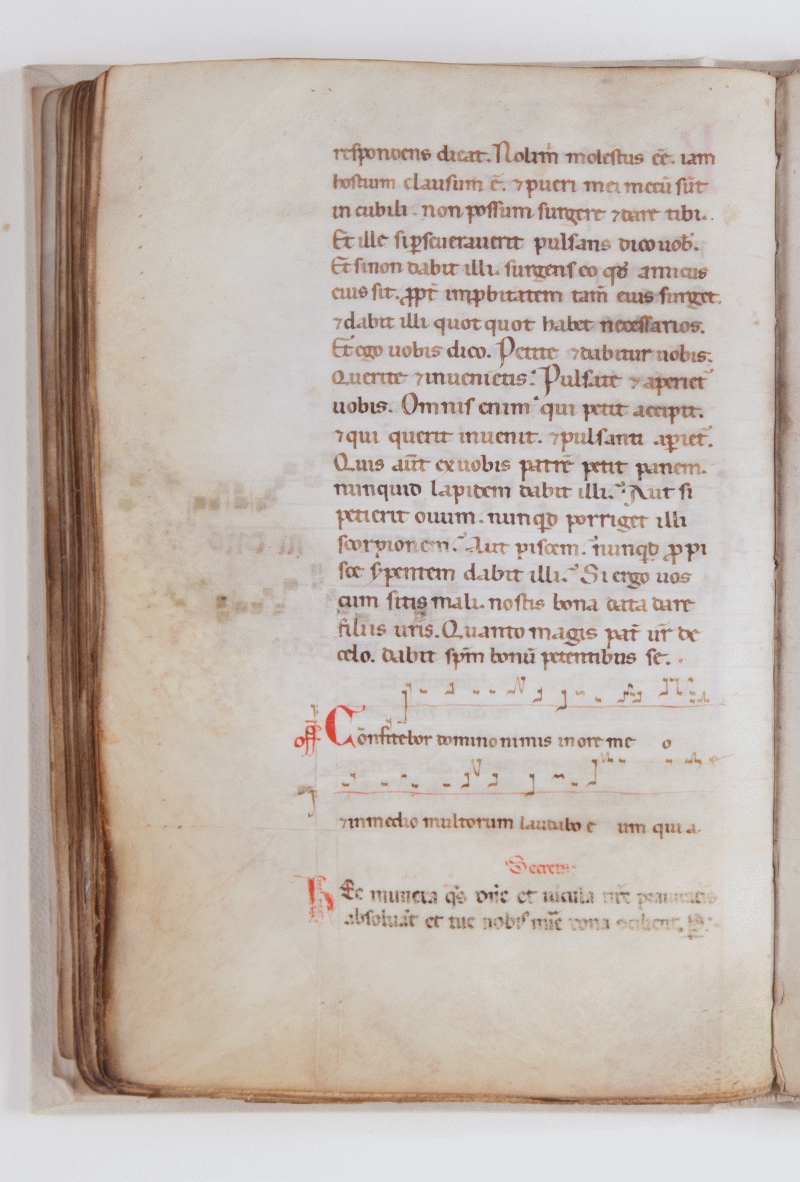 respondens dicat. Noli m̄ molestus eē. iam
hostium clausum ē. ⁊ pueri mei mecū sūt
in cubili. non possum surgere ⁊ dare tibi.
Et ille si pseuerauerit pulsans dico uob̄.
Et si non dabit illi. surgens eo qđ amicus
eius sit. ꝓpt̄ inpbitatem tam̄ eius surget.
⁊ dabit illi quotquot habet necessarios.
Et ego uobis dico. Petite ⁊ dabitur uobis.
Querite ⁊ inuenietis. Pulsate ⁊ aperiet̄
uobis. Omnis enim qui petit accipit.
⁊ qui querit inuenit. ⁊ pulsanti apiet̄.
Quis aūt ex uobis patrē petit panem.
nunquid lapidem dabit illi. Aut si
petierit ouum. nunqđ porriget illi
scorpionem. Aut piscem. nunqđ ꝓ pi
sce s̄pentem dabit illi. Si ergo uos
cum sitis mali. nostis bona data dare
filiis ur̄is. Quanto magis pat̄ ur̄ de
celo. dabit spm̄ bonū petentibus se.
off Confitebor domino nimis in ore me o
⁊ in medio multorum laudabo e um qui a
Secreta
Hec munera qs̄ dn̄e et uincla nr̄e prauitatis
absoluāt et tue nobis mīe dona